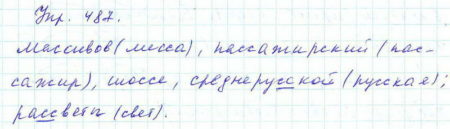 Упр. 487.
Массивов (масса), пассажирский (пас-
сажир), шоссе, среднерусской (русская);
рассветы (свет).